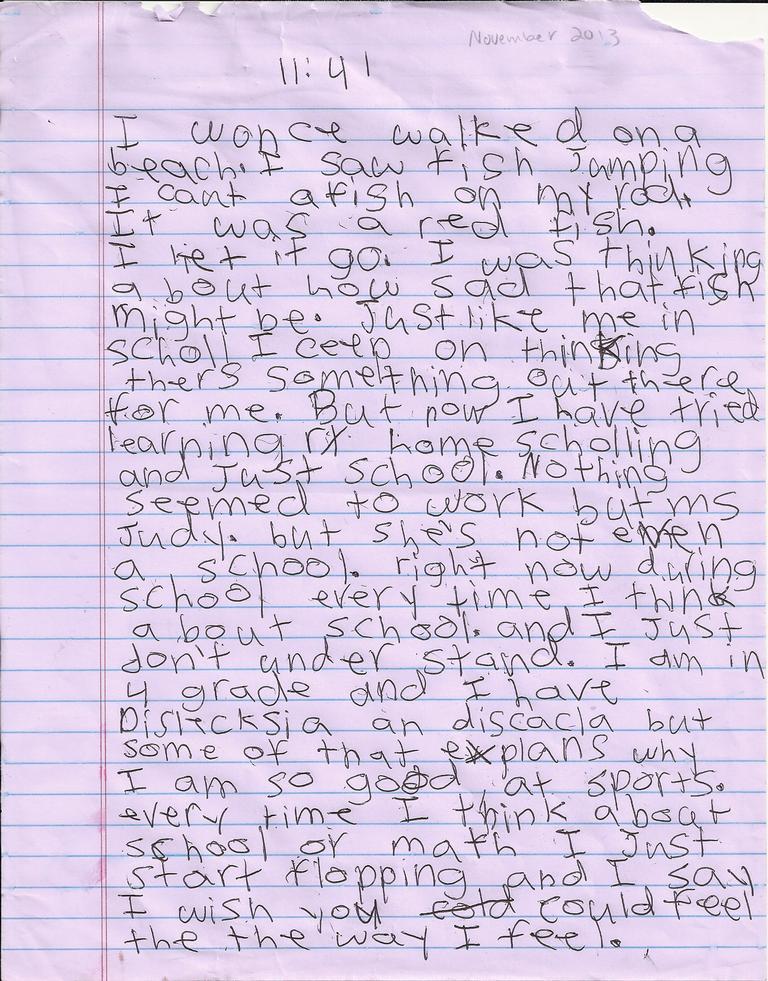 November 2013
11:41
I wonce walked on a
beach. I saw fish Jamping
I cant afish on my rod.
It was a red fish.
I let it go. I was thinking
a bout how sad that fish
might be. Just like me in
scholl I ceep on thinking
thers something out there
for me. But now I have tried
learning rx home scholling
and Just school. Nothing
seemed to work but ms
Judy. but she's not even
a school. right now during
school every time I think
a bout school. and I Just
don't under stand. I am in
4 grade and I have
Dislecksia an discacla but
some of that explans why
I am so good at sports.
every time I think a bout
school or math I Just
start flopping and I say
I wish you could feel
the the way I feel.